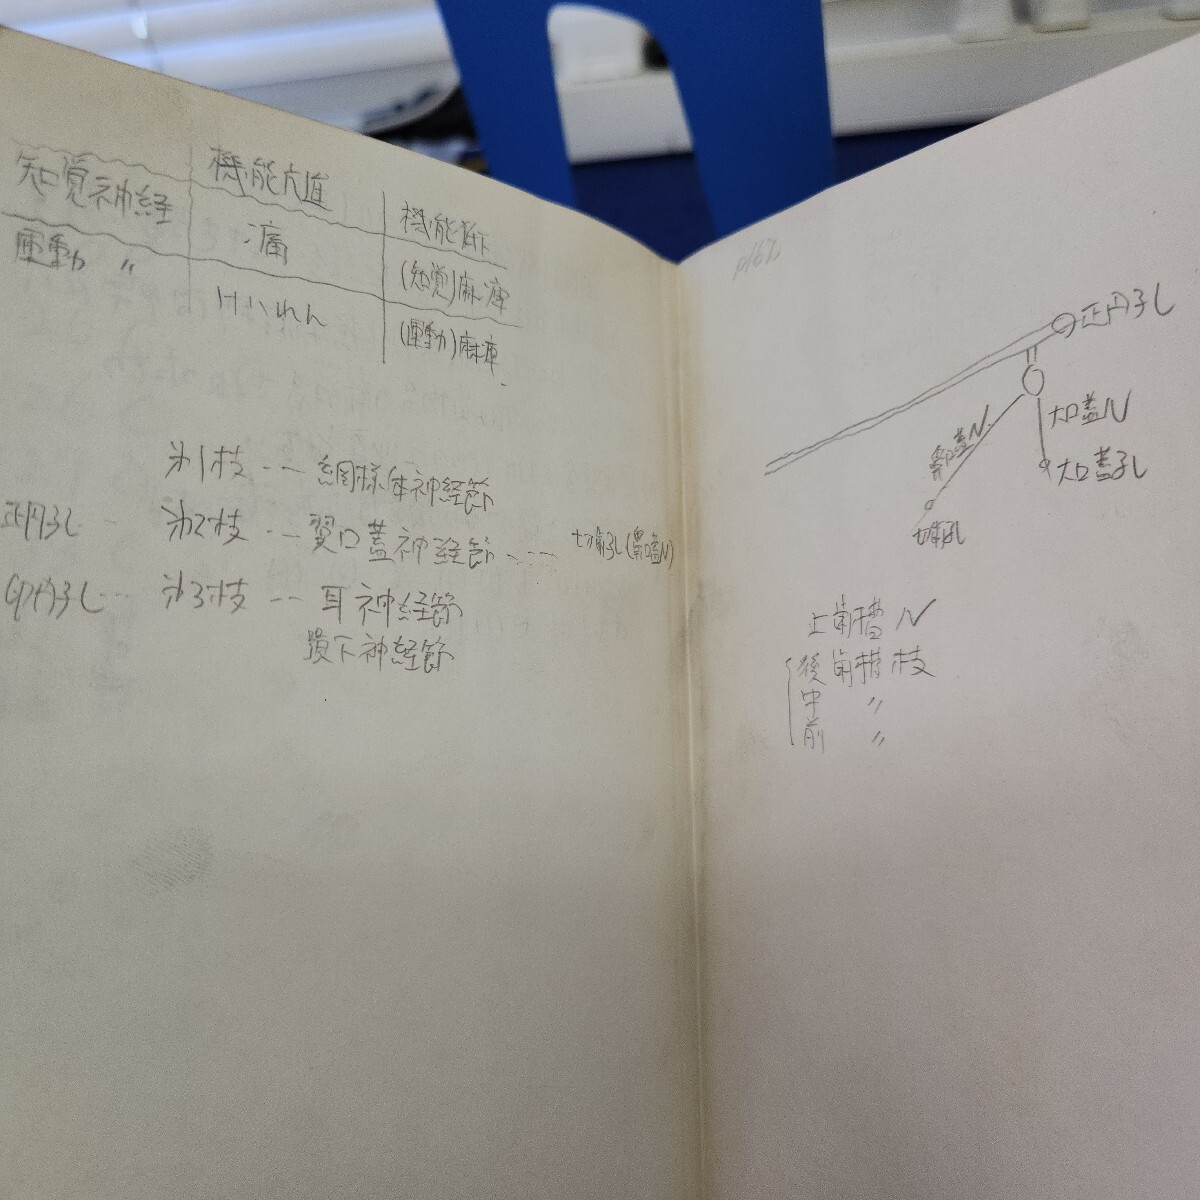 機能亢進 機能低下
知覚神経 痛 (知覚)麻痺
運動 〃 けいれん (運動)麻痺
第1枝 --- 網様体神経節
正円孔 --- 第2枝 --- 翼口蓋神経節 --- 切歯孔(鼻口蓋N)
卵円孔 --- 第3枝 --- 耳神経節
顎下神経節
p162
正円孔
大口蓋N
鼻口蓋N
大口蓋孔
切歯孔
上歯槽N
後歯槽枝
中 〃
前 〃